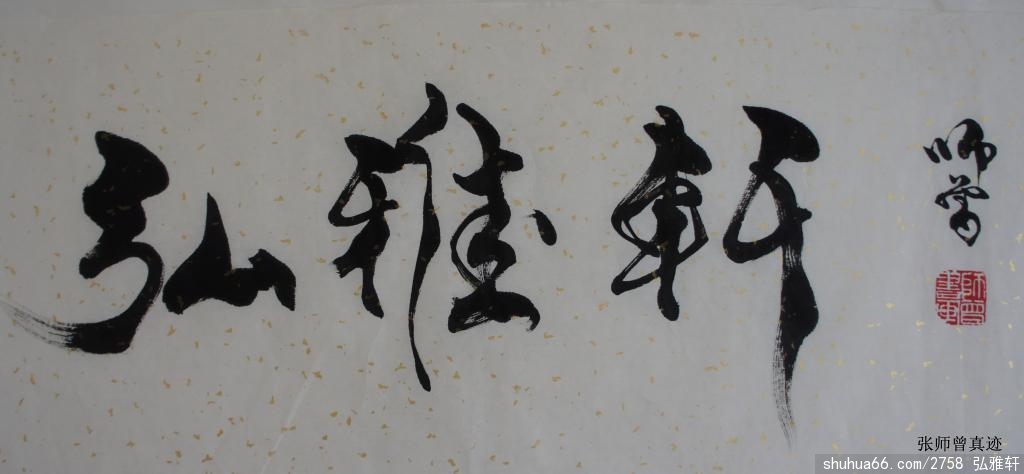 弘雅軒
师曾
张师曾真迹
shuhua66.com/2758 弘雅轩